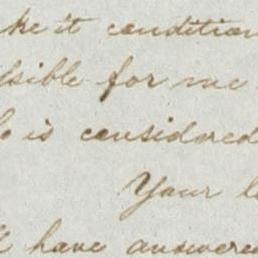 ke it condition
sible for me
o is considered
Your l
have answered